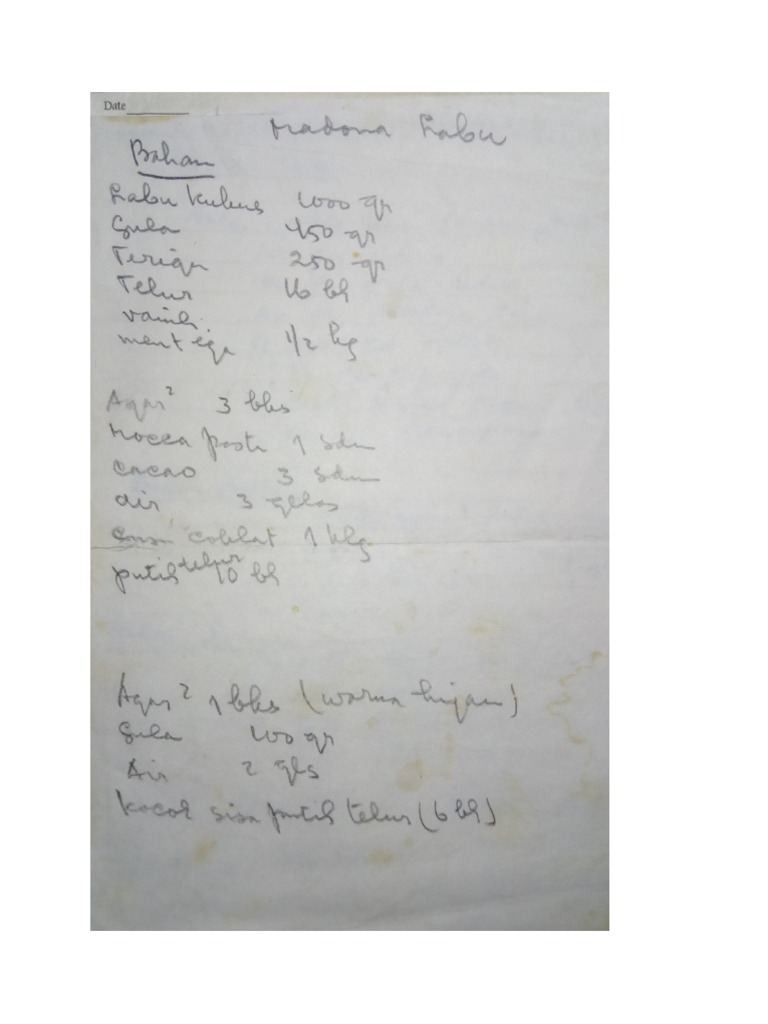 Date
Madona Labu
Bahan
Labu kukus 1000 gr
Gula 450 gr
Terigu 250 gr
Telur 16 bh
vanili
mentega 1/2 kg
Agar² 3 bks
Mocca pasta 1 sdm
cacao 3 sdm
air 3 gelas
susu coklat 1 klg
putih telur 10 bh
Agar² 1 bks (warna hijau)
Gula 100 gr
Air 2 gls
kocok sisa putih telur (6 bh)